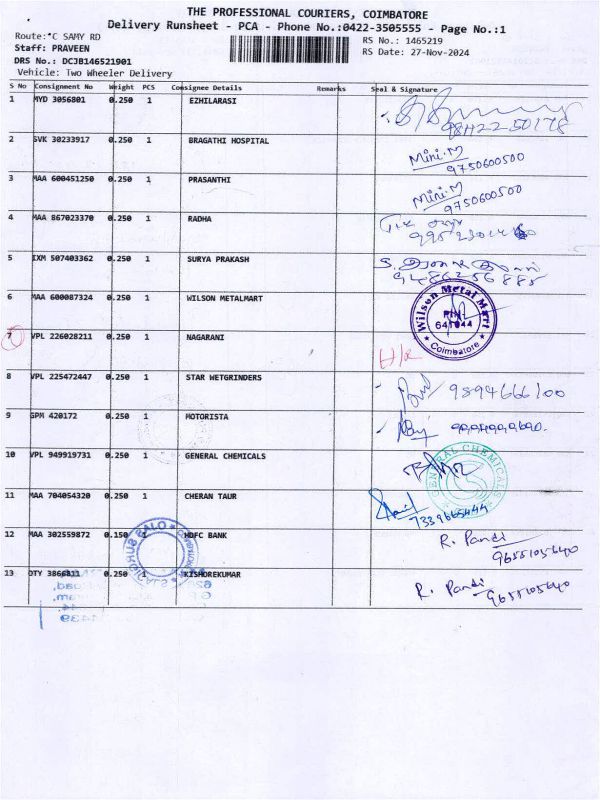 THE PROFESSIONAL COURIERS, COIMBATORE
Delivery Runsheet - PCA - Phone No.:0422-3505555 - Page No.:1
Route:*C SAMY RD
RS No.: 1465219
Staff: PRAVEEN
RS Date: 27-Nov-2024
DRS No.: DCJB146521901
Vehicle: Two Wheeler Delivery
S No Consignment No Weight PCS Consignee Details Remarks Seal & Signature
1 MYD 3056801 0.250 1 EZHILARASI
2 SVK 30233917 0.250 1 BRAGATHI HOSPITAL Mini.M
9750600500
3 MAA 600451250 0.250 1 PRASANTHI Mini.M
9750600500
4 MAA 867023370 0.250 1 RADHA
5 IXM 507403362 0.250 1 SURYA PRAKASH
9486256885
6 MAA 600087324 0.250 1 WILSON METALMART Wilson Metal Mart
PIN
641044
* Coimbatore *
7 VPL 226028211 0.250 1 NAGARANI
8 VPL 225472447 0.250 1 STAR WETGRINDERS 9894666100
9 GPM 420172 0.250 1 MOTORISTA
10 VPL 949919731 0.250 1 GENERAL CHEMICALS GENERAL CHEMICALS
11 MAA 704054320 0.250 1 CHERAN TAUR
7339665444
12 MAA 302559872 0.150 1 HDFC BANK R. Pandi
9655105640
13 OTY 3866811 0.250 1 KISHOREKUMAR R. Pandi
9655105640